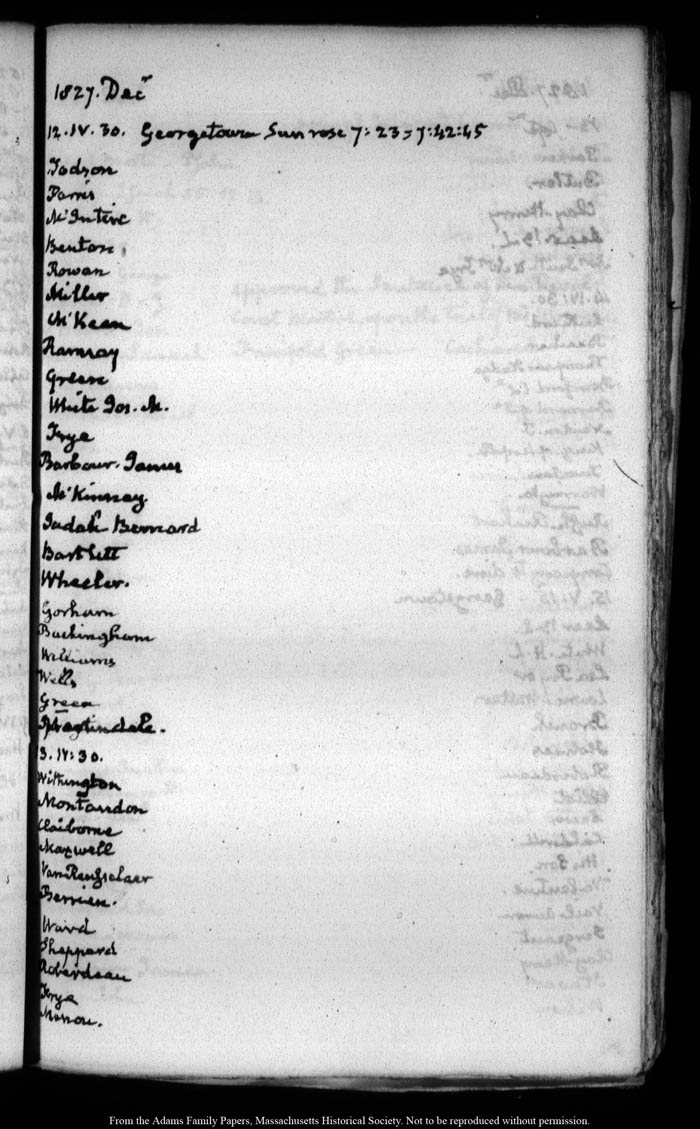 1827. Decr
12. IV. 30. Georgetown Sun rose 7: 23 = 7:42:45
Judson
Parris
McIntire
Benton,
Rowan
Miller
McKean
Ramsay
Green
White Jos. M.
Frye
Barbour. James
McKinney.
Judah Bernard
Bartlett
Wheeler.
Gorham
Buckingham
Williams
Wells
Green
Martindale.
13. IV: 30.
Withington
Montandon
Claiborne
Maxwell
Van Rensselaer
Berrien.
Ward
Sheppard
Roberdeau
Frye
From the Adams Family Papers, Massachusetts Historical Society. Not to be reproduced without permission.